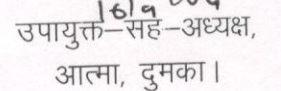 उपायुक्त-सह-अध्यक्ष,
आत्मा, दुमका।